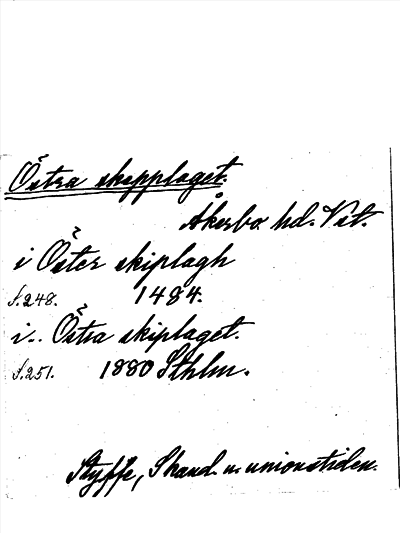 Östra skepplaget.
Åkerbo hd. Vst.
i Öster skiplagh
s. 248. 1484.
i.. Östra skiplaget.
s. 251. 1880 Sthlm.
Styffe, Skand. u. unionstiden.